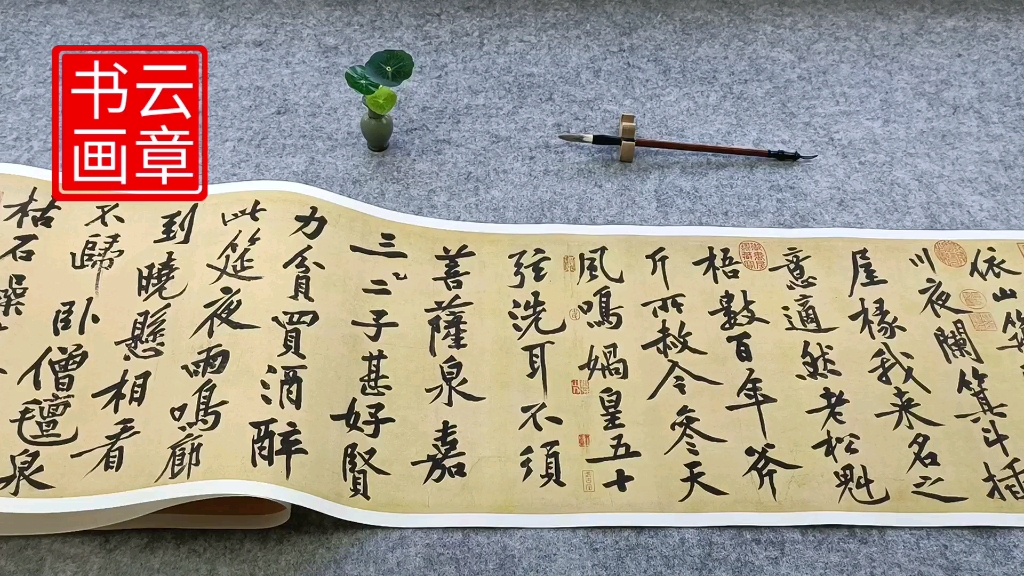 云章
书画
依山築
川夜闌箕斗插
屋椽我来名之
意適然老松魁
梧數百年斧
斤所赦今參天
風鳴媧皇五十
弦洗耳不須
菩薩泉嘉
三二子甚好賢
力貧買酒醉
此筵夜雨鳴廊
到曉懸相看
不歸臥僧氊泉
枯石燥